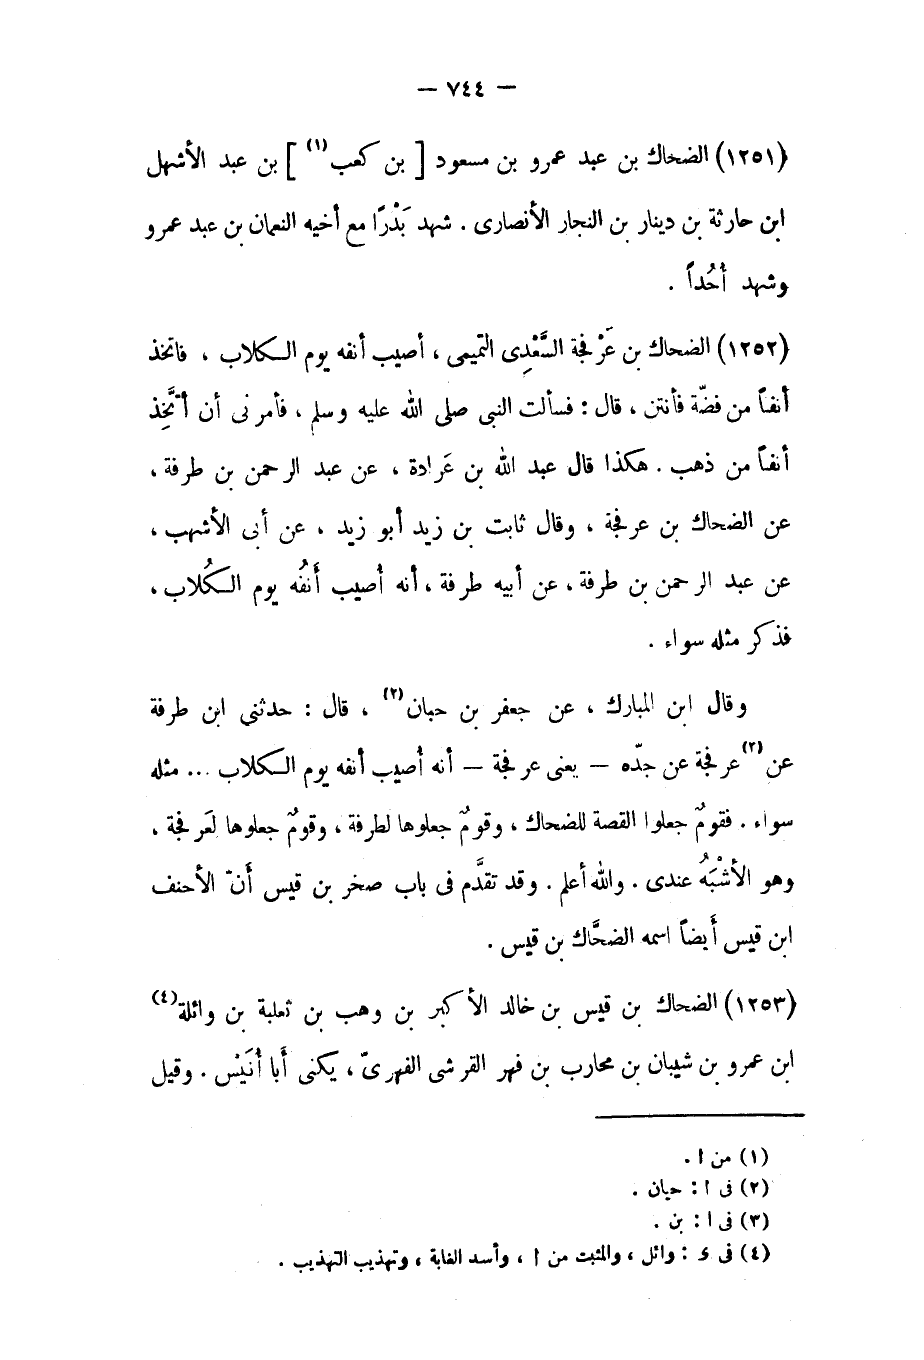 — ٧٤٤ —
(١٢٥١) الضحاك بن عبد عمرو بن مسعود [ بن كعب(١) ] بن عبد الأشهل
ابن حارثة بن دينار بن النجار الأنصارى . شهد بَدْرًا مع أخيه النعمان بن عبد عمرو
وشهد أُحُداً .
(١٢٥٢) الضحاك بن عَرْفجة السَّعْدِى التميمى ، أصيب أنفه يوم الكلاب ، فاتخذ
أنفاً من فضّة فأنتن ، قال : فسألت النبى صلى الله عليه وسلم ، فأمرنى أن أتَّخِذ
أنفاً من ذهب . هكذا قال عبد الله بن عَرادة ، عن عبد الرحمن بن طرفة ،
عن الضحاك بن عرفجة ، وقال ثابت بن زيد أبو زيد ، عن أبى الأشهب ،
عن عبد الرحمن بن طرفة ، عن أبيه طرفة ، أنه أُصيب أَنفُه يوم الكُلاب ،
فذكر مثله سواء .
وقال ابن المبارك ، عن جعفر بن حبان(٢) ، قال : حدثنى ابن طرفة
عن(٣) عرفجة عن جدّه — يعنى عرفجة — أنه أُصيب أنفه يوم الكلاب ... مثله
سواء . فقومٌ جعلوا القصة للضحاك ، وقومٌ جعلوها لطرفة ، وقومٌ جعلوها لعَرفجة ،
وهو الأشْبَهُ عندى . والله أعلم . وقد تقدَّم فى باب صخر بن قيس أَنّ الأحنف
ابن قيس أَيضاً اسمه الضحَّاك بن قيس .
(١٢٥٣) الضحاك بن قيس بن خالد الأكبر بن وهب بن ثعلبة بن وائلة(٤)
ابن عمرو بن شيبان بن محارب بن فهر القرشى الفهرىّ ، يكنى أَبا أُنَيْس . وقيل
(١) من ا .
(٢) فى ا : حيان .
(٣) فى ا : بن .
(٤) فى ى : وائل ، والمثبت من ا ، وأسد الغابة ، وتهذيب التهذيب .